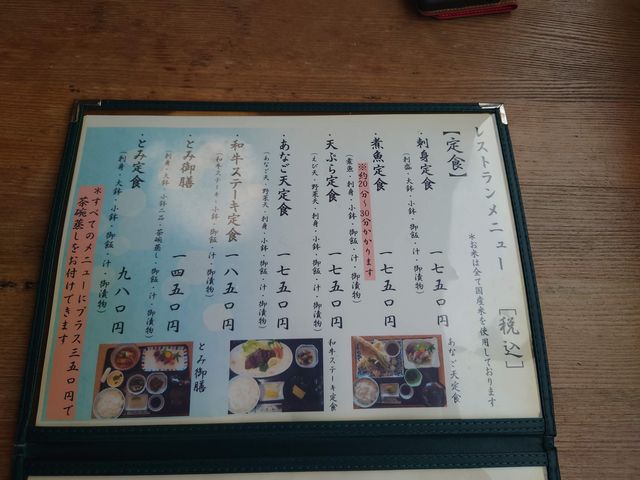 レストランメニュー [税込]
*お米は全て国産米を使用しております
【定食】
・刺身定食 一七五〇円
(刺盛・大鉢・小鉢・御飯・汁・御漬物)
・煮魚定食 一七五〇円
※約20分〜30分かかります
(煮魚・刺身・小鉢・御飯・汁・御漬物)
・天ぷら定食 一七五〇円
(えび天・野菜天・刺身・小鉢・御飯・汁・御漬物)
・あなご天定食 一七五〇円
(あなご天・野菜天・刺身・小鉢・御飯・汁・御漬物)
・和牛ステーキ定食 一八五〇円
(和牛ステーキ・小鉢・御飯・汁・御漬物)
・とみ御膳 一四五〇円
(刺身・大鉢・小鉢二品・茶碗蒸し・御飯・汁・御漬物)
・とみ定食 九八〇円
(刺身・大鉢・小鉢・御飯・汁・御漬物)
*すべてのメニューにプラス三五〇円で
茶碗蒸しをお付けできます
あなご天定食
和牛ステーキ定食
とみ御膳